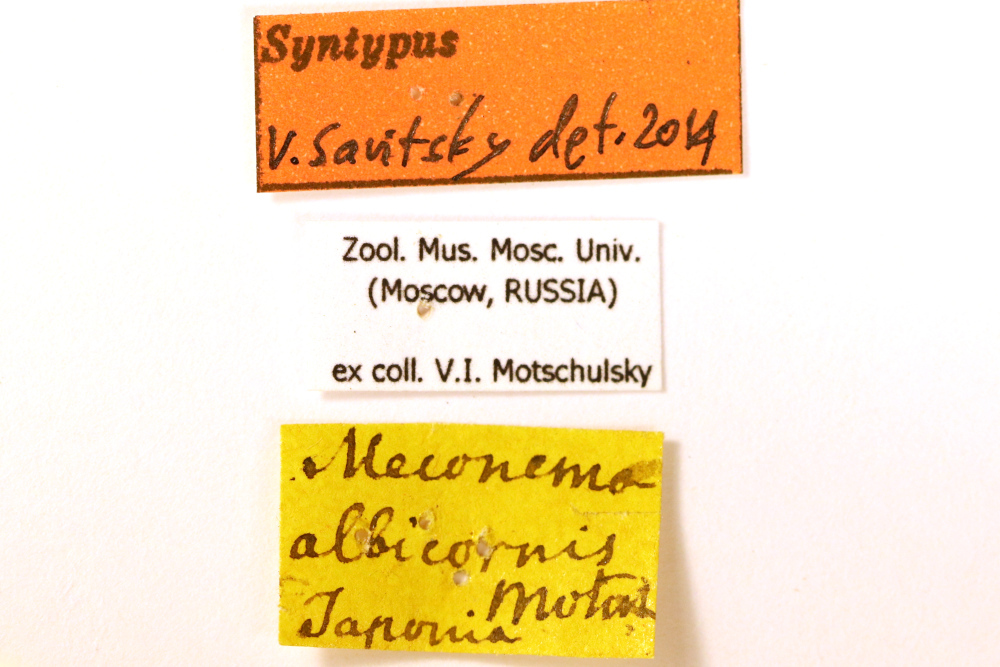 Syntypus
V. Savitsky det. 2014
Zool. Mus. Mosc. Univ.
(Moscow, RUSSIA)
ex coll. V.I. Motschulsky
Meconema
albicornis
Motsch
Japonia